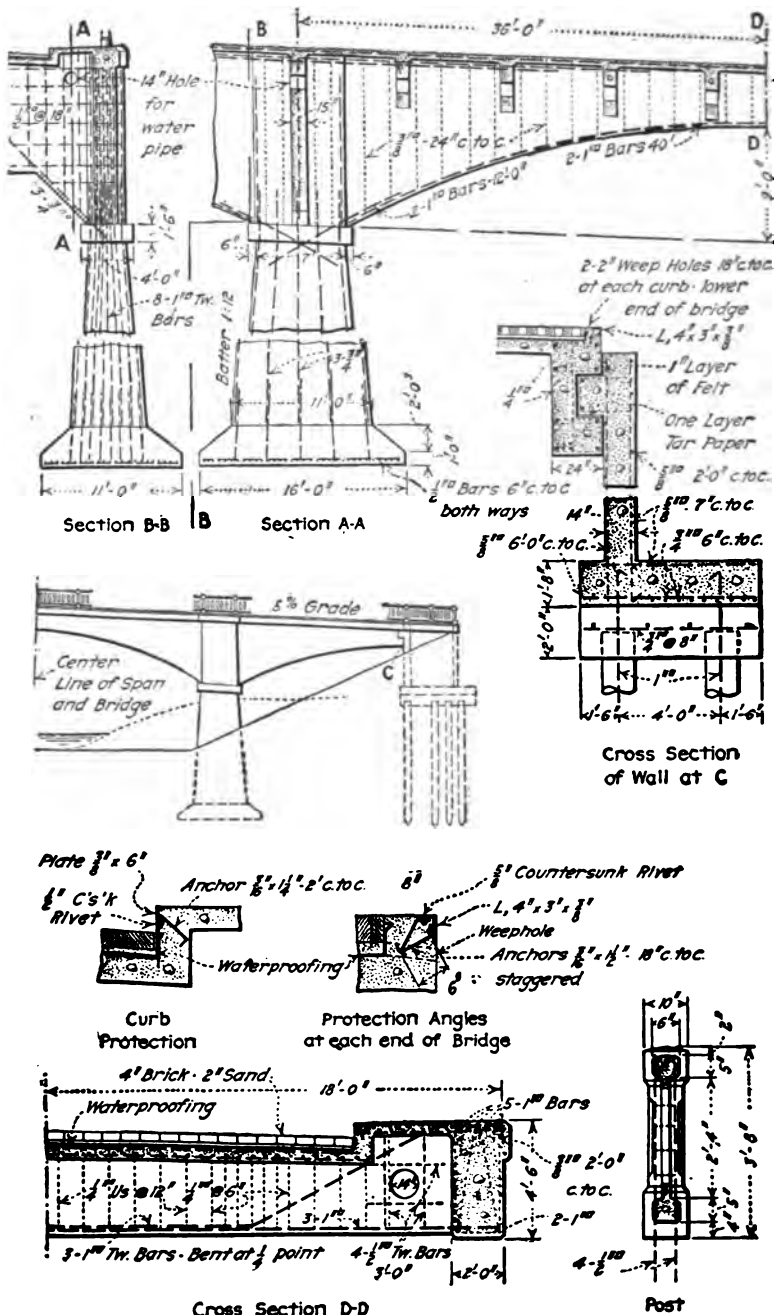 A
B
36'-0"
D
14" Hole
for
water
pipe
15"
3/8"□ - 24" c. to c.
2-1"□ Bars 40'
2-1"□ Bars-12'-0"
D
9'-0"
A
1'-6"
4'-0"
8-1"□ Tw.
Bars
6"
6"
Batter 1:12
11'-0"
2'-0"
1'-0"
11'-0"
16'-0"
1/2"□ Bars 6" c. to c.
both ways
Section B-B
B
Section A-A
2-2" Weep Holes 18" c. to c.
at each curb-lower
end of bridge
L, 4" x 3" x 3/8"
1" Layer
of Felt
One Layer
Tar Paper
24"
5/8"□ 2'-0" c. to c.
14"
5/8"□ 7" c. to c.
5/8"□ 6'-0" c. to c.
3/4"□ 6" c. to c.
2'-0"
1'-8"
3/4"□ @ 8"
1"□
1'-6"
4'-0"
1'-6"
Cross Section
of Wall at C
5% Grade
Center
Line of Span
and Bridge
C
Plate 3/8" x 6"
1/2" C's'k
Rivet
Anchor 3/16" x 1 1/4" - 2' c. to c.
Waterproofing
Curb
Protection
8"
5/8" Countersunk Rivet
L, 4" x 3" x 3/8"
Weephole
Anchors 3/16" x 1 1/2" - 18" c. to c.
staggered
6"
Protection Angles
at each end of Bridge
4" Brick - 2" Sand
18'-0"
Waterproofing
5-1"□ Bars
3/8"□ 2'-0"
c. to c.
4'-6"
1/2"□ Us @ 12"
1/2"□ @ 6"
14"
3-1"□
2-1"□
3-1"□ Tw. Bars - Bent at 1/4 point
4-1/2"□ Tw. Bars
3'-0"
2'-0"
Cross Section D-D
10"
6"
2"
5"
2'-4"
3'-8"
5"
4"
4-1/2"□
Post